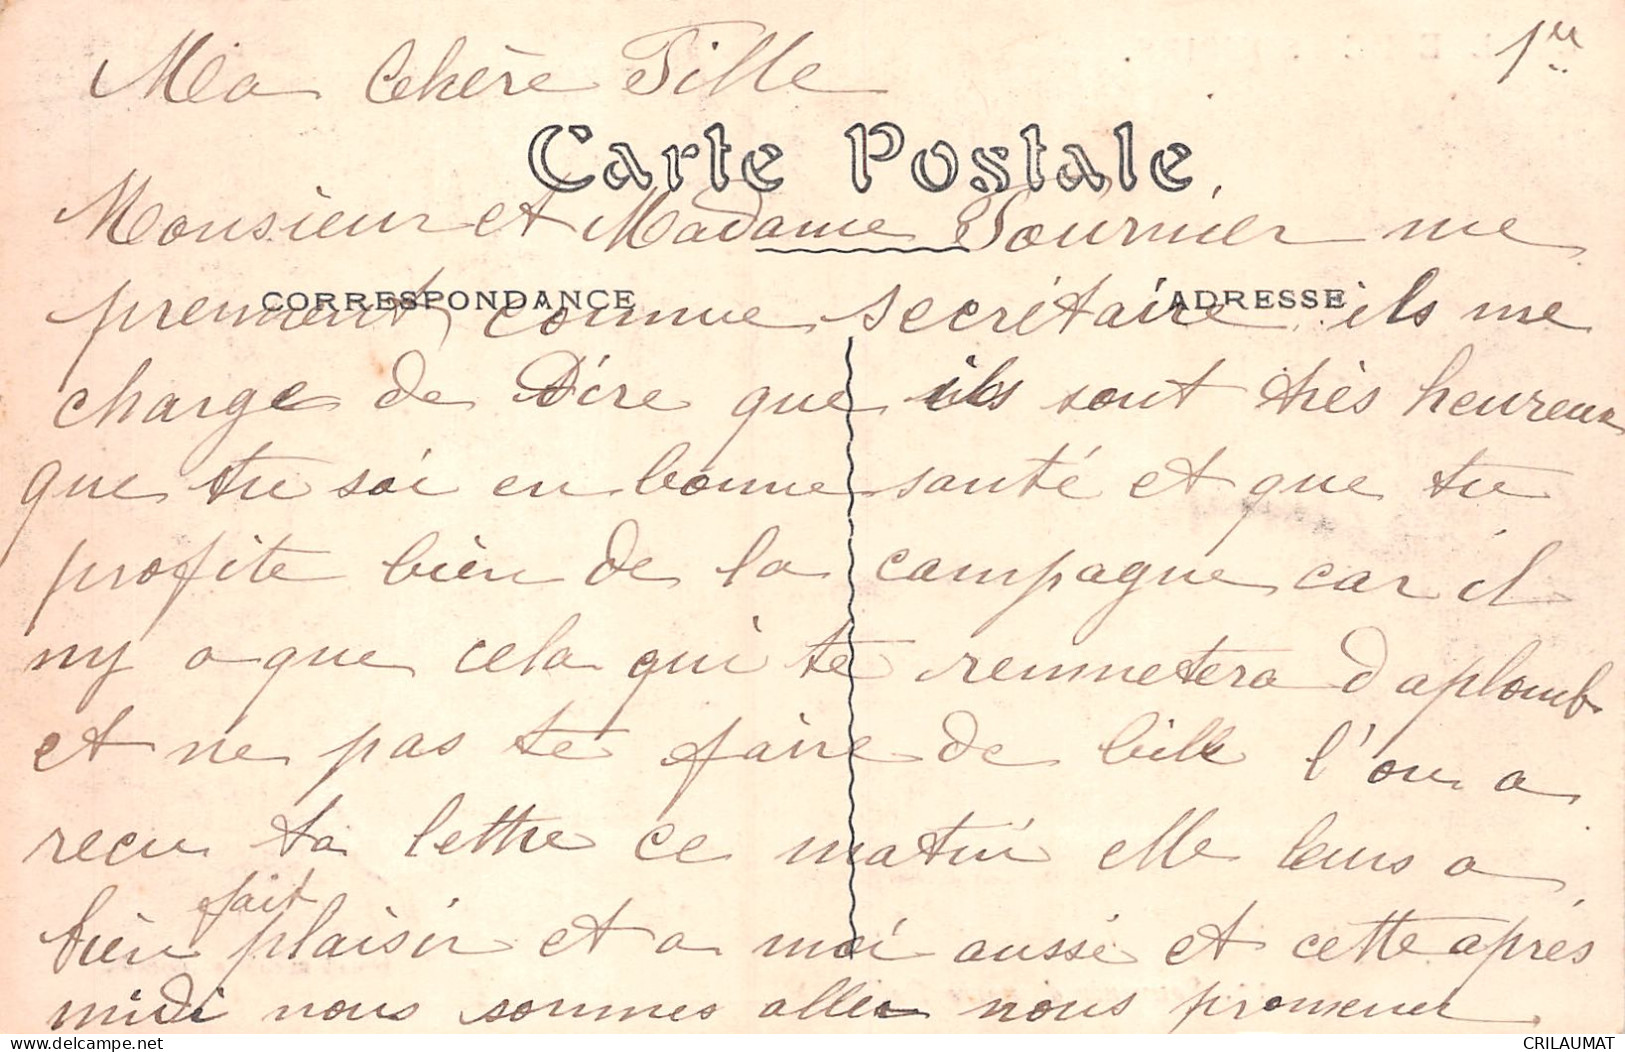 1re
Ma Chère Fille
Carte Postale
Monsieur et Madame Fournier me
CORRESPONDANCE
ADRESSE
prennent comme secrétaire ils me
charge de Dire que ils sont très heureux
que tu soi en bonne santé et que tu
profite bien de la campagne car il
ny a que cela qui te remmetera d aplomb
et ne pas te faire de bille l'on a
recu ta lettre ce matin elle leurs a
bien fait plaisir et a moi aussi et cette après
midi nous sommes aller nous promener
CRILAUMAT